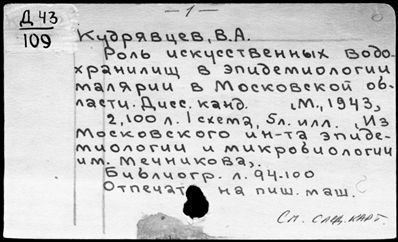 Д 43
109
— 1 —
Кудрявцев, В.А.
Роль искусственных водо-
хранилищ в эпидемиологии
малярии в Московской об-
ласти. Дисс. канд. М., 1943,
2,100 л. 1 схема, 5 л. илл. (Из
Московского ин-та эпиде-
миологии и микробиологии
им. Мечникова).
Библиогр. л. 94-100
Отпечат на пиш. маш.
См. след. карт.